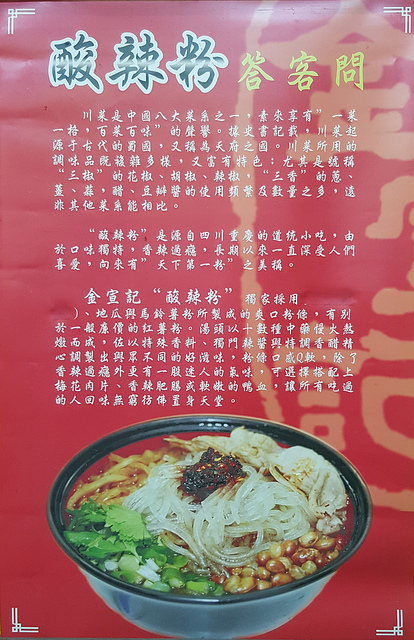 酸辣粉 答客問
川菜是中國八大菜系之一，素來享有"一菜
一格，百菜百味"的聲譽。據史書記載，川菜起
源于古代的蜀國，又稱為天府之國。川菜所用的
調味品既複雜多樣，又富有特色；尤其是號稱
"三椒"的花椒、胡椒、辣椒，"三香"的蔥、
薑、蒜，醋、豆瓣醬的使用頻繁及數量之多，遠
非其他菜系能相比。
"酸辣粉"是源自四川重慶的道統小吃，由
於口味獨特，香辣過癮，長期以來一直深受人們
喜愛，向來有"天下第一粉"之美稱。
金宣記"酸辣粉"獨家採用
)、地瓜與馬鈴薯粉所製成的爽口粉條，有別
於一般廉價的紅薯粉。湯頭以十數種中藥慢火熬
燉而成，佐以特殊香料、獨門辣醬與特調香醋精
心調製出與眾不同的好滋味，粉條口感Q軟，除了
香辣過癮外更有一股迷人的氣味，可選擇搭配上
梅花肉片、香辣肥腸或軟嫩的鴨血，讓所有吃過
的人回味無窮彷彿置身天堂。